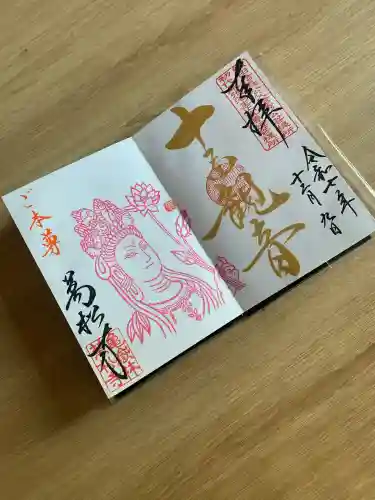 奉拝
令和七年
十二月九日
十一面観音
ご本尊
萬松寺